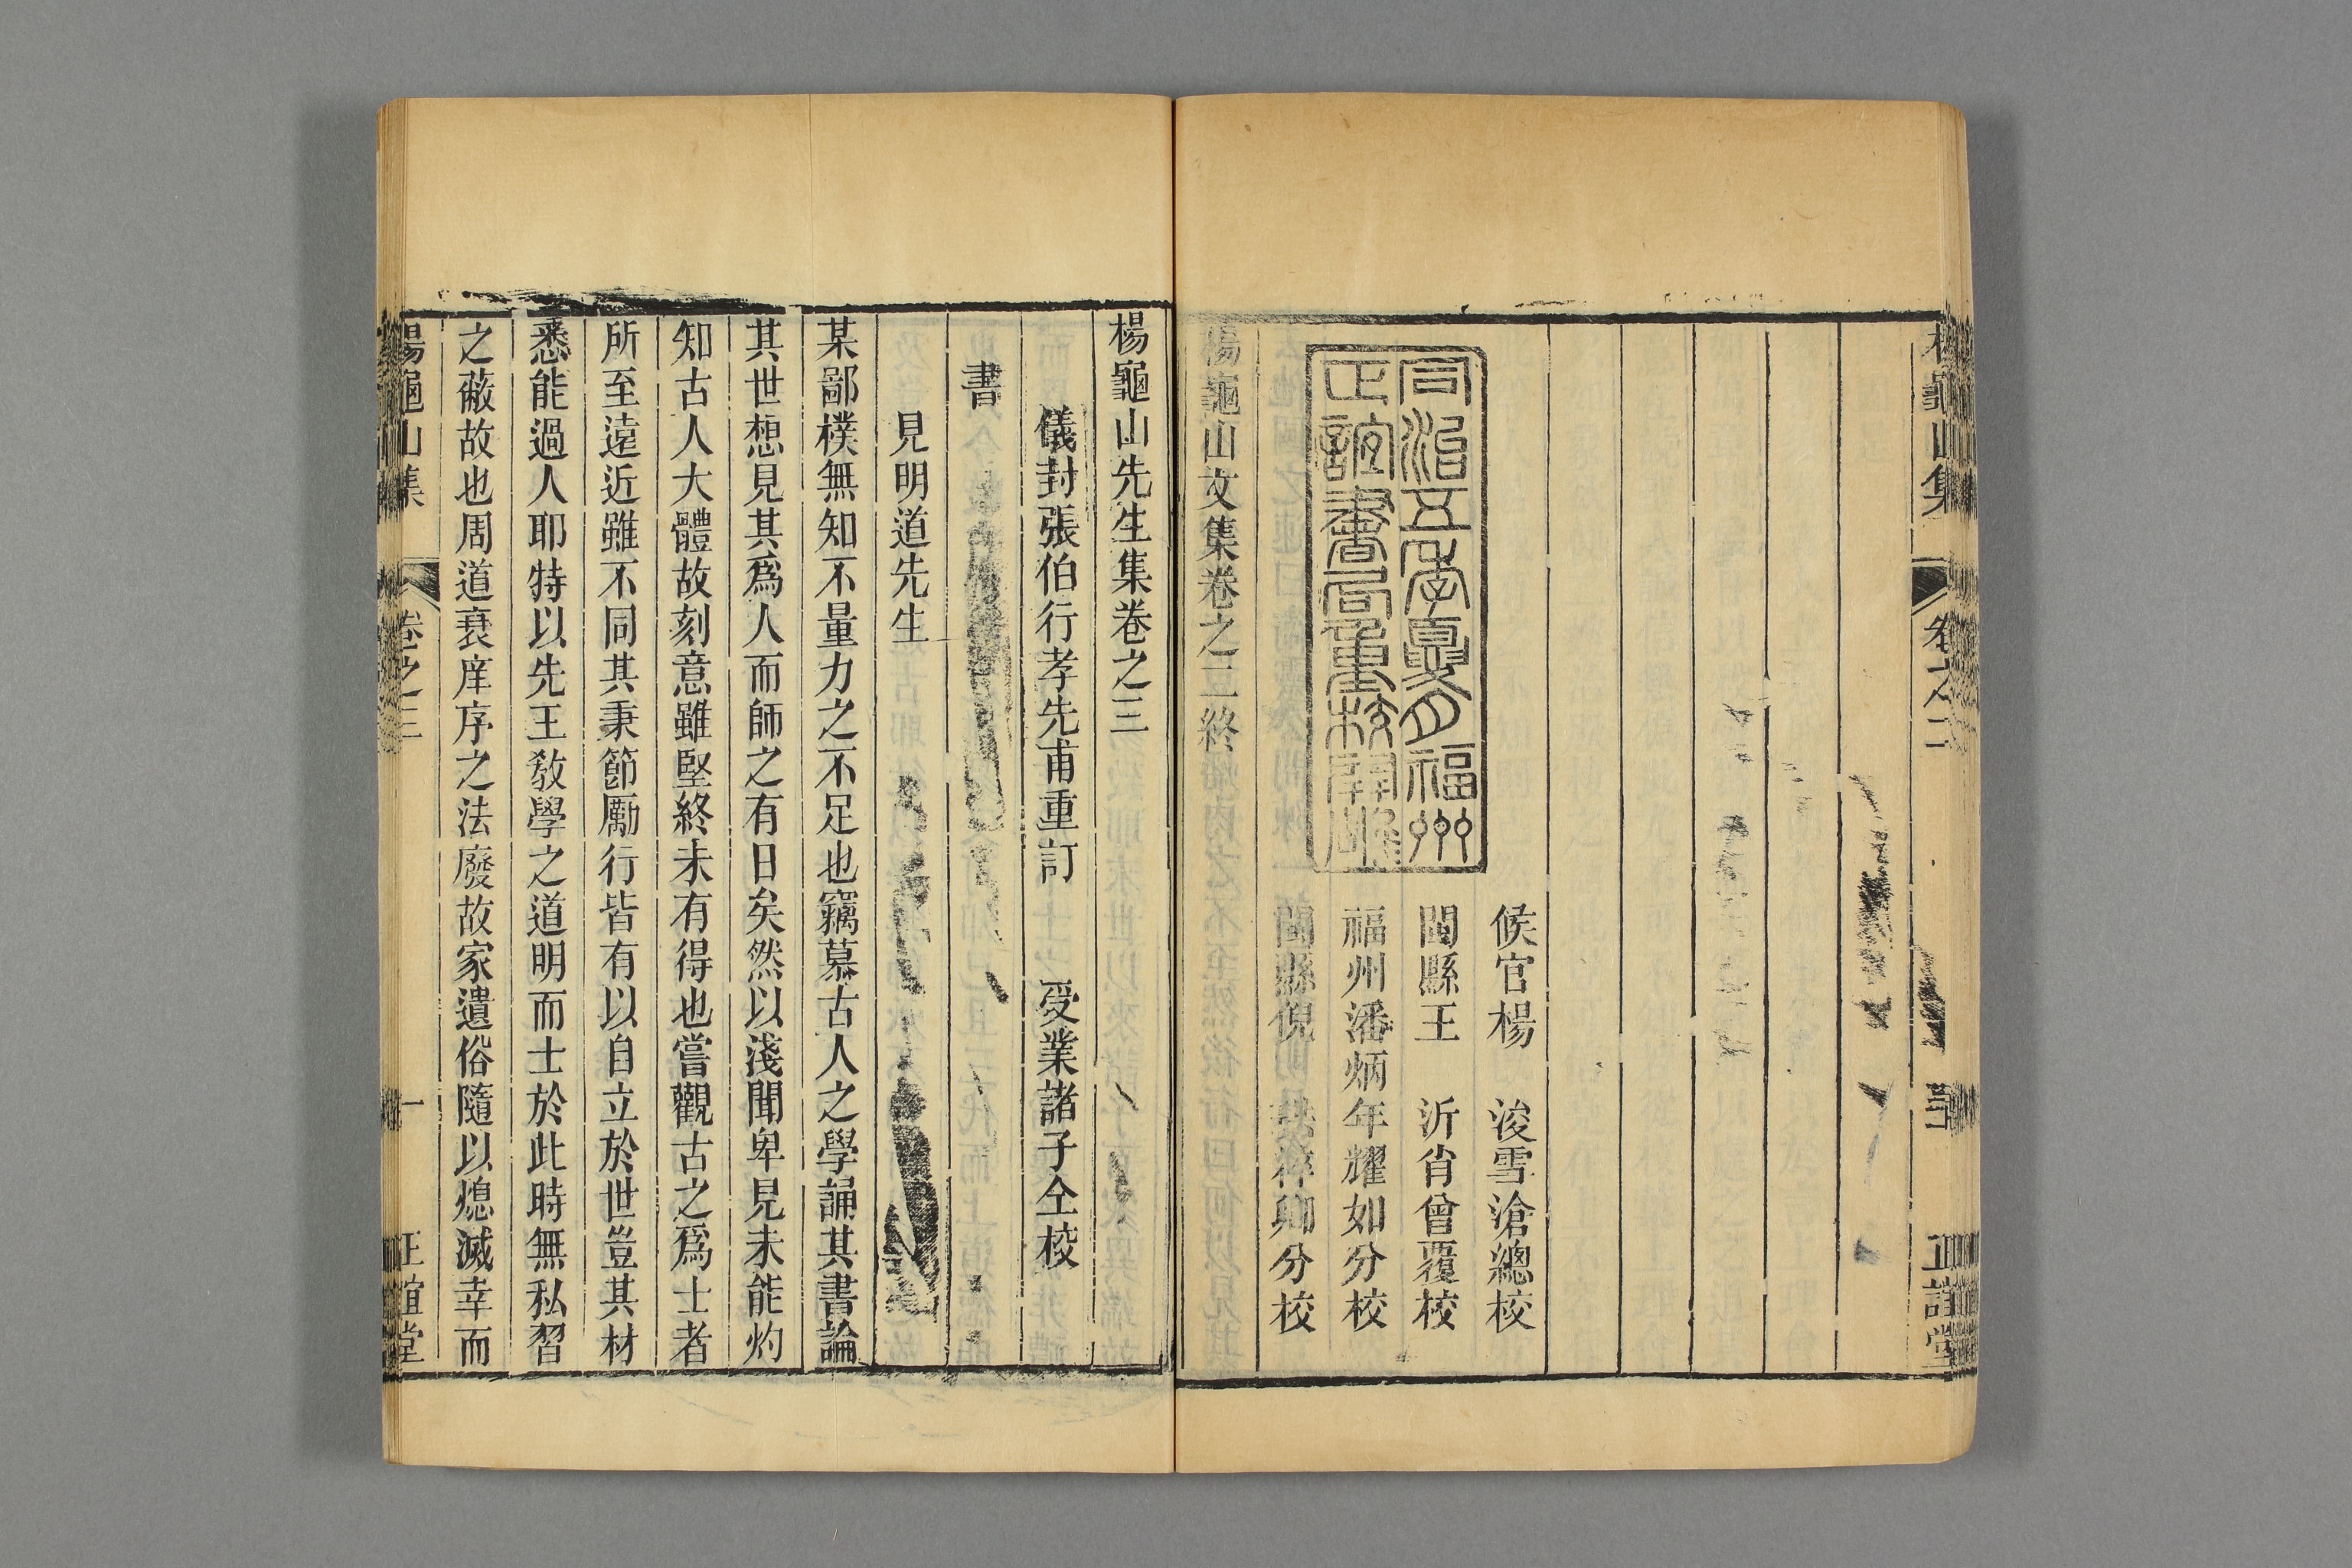 楊龜山集 卷之二 正誼堂
候官楊 浚雪滄總校
閩縣王 沂肖曾覆校
福州潘炳年耀如分校
閩縣倪 分校
同治五年夏月福州
正誼書局重校開雕
楊龜山文集卷之二終
楊龜山先生集卷之三
儀封張伯行孝先甫重訂 受業諸子仝校
書
見明道先生
某鄙樸無知不量力之不足也竊慕古人之學誦其書論
其世想見其爲人而師之有日矣然以淺聞卑見未能灼
知古人大體故刻意雖堅終未有得也嘗觀古之爲士者
所至遠近雖不同其秉節勵行皆有以自立於世豈其材
悉能過人耶特以先王敎學之道明而士於此時無私習
之蔽故也周道衰庠序之法廢故家遺俗隨以熄滅幸而
楊龜山集 卷之三 一 正誼堂